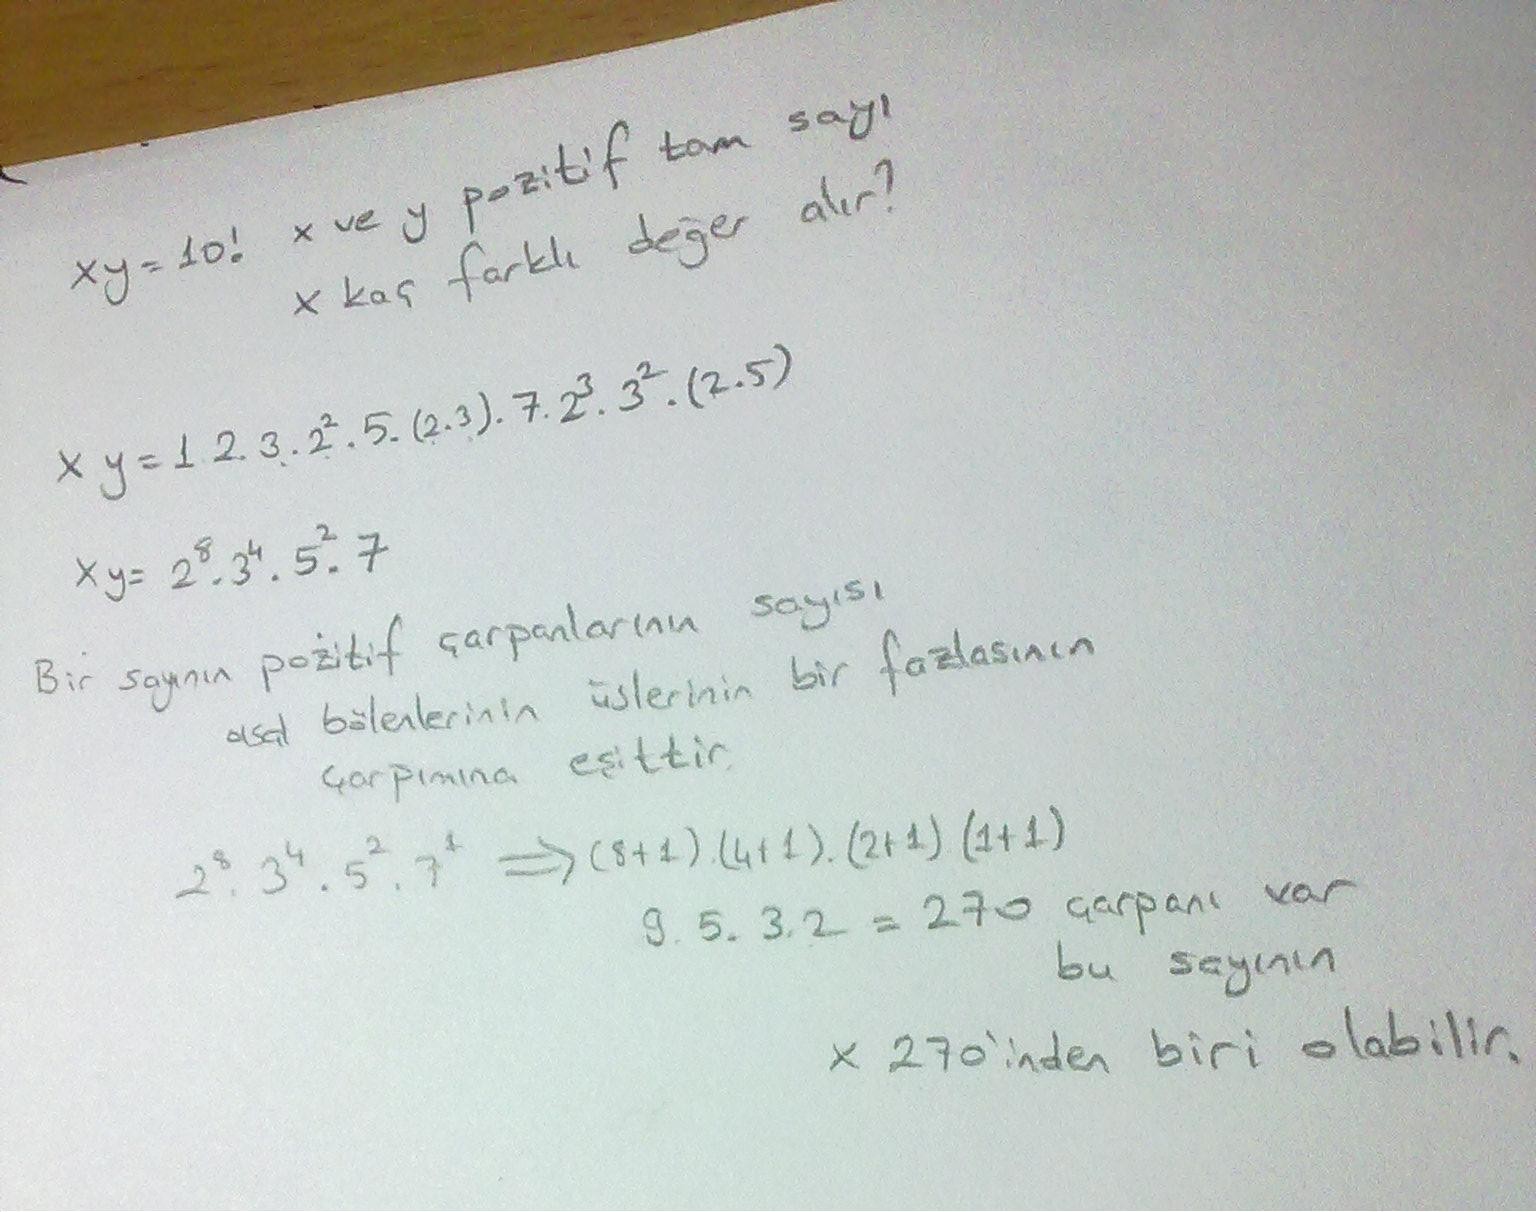 xy = 10! x ve y pozitif tam sayı
x kaç farklı değer alır?
xy = 1.2.3.2².5.(2.3).7.2³.3².(2.5)
xy = 2⁸.3⁴.5².7
Bir sayının pozitif çarpanlarının sayısı
asal bölenlerinin üslerinin bir fazlasının
çarpımına eşittir.
2⁸.3⁴.5².7¹ ⇒ (8+1).(4+1).(2+1)(1+1)
9.5.3.2 = 270 çarpanı var
bu sayının
x 270'inden biri olabilir.